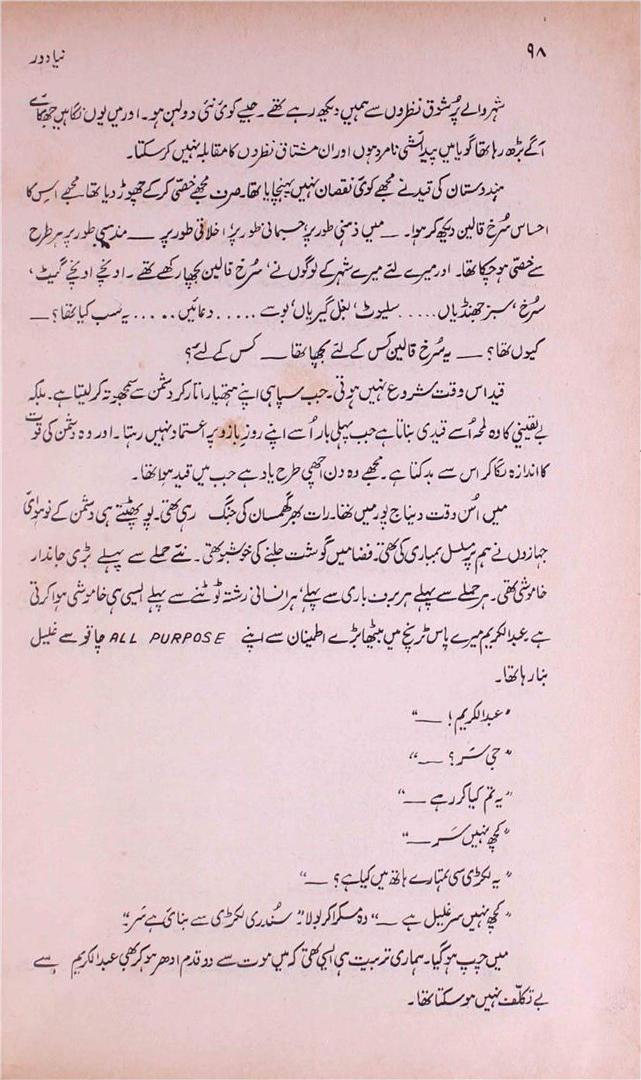 ۹۸
نیا دور
شہر والے پُر شوق نظروں سے ہمیں دیکھ رہے تھے۔ جیسے کوئی نئی دولہن ہو۔ اور میں یوں نگاہیں جھکائے
آگے بڑھ رہا تھا گویا میں پیدائشی نامرد ہوں اور ان مشتاق نظروں کا مقابلہ نہیں کر سکتا۔
ہندوستان کی قید نے مجھے کوئی نقصان نہیں پہنچایا تھا۔ صرف مجھے خصّی کر کے چھوڑ دیا تھا۔ مجھے اس کا
احساس سُرخ قالین دیکھ کر ہوا۔ — میں ذہنی طور پر، جسمانی طور پر، اخلاقی طور پر — مذہبی طور پر ہر طرح
سے خصّی ہو چکا تھا۔ اور میرے لئے میرے شہر کے لوگوں نے، سُرخ قالین بچھا رکھے تھے۔ اونچے اونچے گیٹ،
سُرخ، سبز جھنڈیاں ..... سلیوٹ، بغل گیریاں، بوسے ..... دعائیں ..... یہ سب کیا تھا؟ —
کیوں تھا؟ — یہ سُرخ قالین کس کے لئے بچھا تھا — کس کے لئے؟
قید اس وقت شروع نہیں ہوتی۔ جب سپاہی اپنے ہتھیار اتار کر دشمن سے سمجھوتہ کر لیتا ہے۔ بلکہ
بے یقینی کا وہ لمحہ اُسے قیدی بناتا ہے جب پہلی بار اُسے اپنے روزِ بازو پہ اعتماد نہیں رہتا۔ اور وہ دشمن کی قوت
کا اندازہ لگا کر اس سے بدکتا ہے۔ مجھے وہ دن اچھی طرح یاد ہے جب میں قید ہوا تھا۔
میں اُس وقت دیناج پور میں تھا۔ رات بھر گھمسان کی جنگ رہی تھی۔ پو پھٹتے ہی دشمن کے نو ہوائی
جہازوں نے ہم پر مسلسل بمباری کی تھی۔ فضا میں گوشت جلنے کی خوشبو تھی۔ نئے حملے سے پہلے بڑی جاندار
خاموشی تھی۔ ہر حملے سے پہلے ہر برف باری سے پہلے، ہر انسانی رشتہ ٹوٹنے سے پہلے ایسی ہی خاموشی ہوا کرتی
ہے۔ عبدالکریم میرے پاس ٹرینچ میں بیٹھا بڑے اطمینان سے اپنے ALL PURPOSE چاقو سے غلیل
بنا رہا تھا۔
"عبدالکریم! —"
"جی سَر؟ —"
"یہ تم کیا کر رہے —"
"کچھ نہیں سَر —"
"یہ لکڑی سی تمہارے ہاتھ میں کیا ہے؟ —"
"کچھ نہیں سر غلیل ہے —" وہ مسکرا کر بولا۔ "سُندری لکڑی سے بنائی ہے سَر۔"
میں چپ ہو گیا۔ ہماری تربیت ہی ایسی تھی کہ میں موت سے دو قدم ادھر ہو کر بھی عبدالکریم سے
بے تکلّف نہیں ہو سکتا تھا۔